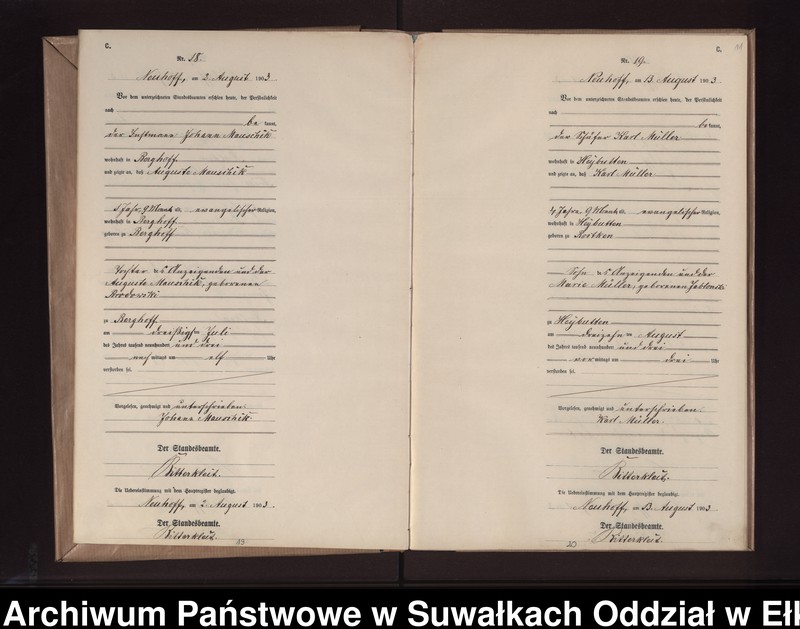 C.
Nr. 18.
Neuhoff, am 2. August 1903
Vor dem unterzeichneten Standesbeamten erschien heute, der Persönlichkeit
nach
be kannt,
der Instmann Johann Mauschik
wohnhaft in Berghoff
und zeigte an, daß Auguste Mauschik
5 Jahr, 9 Monat a. evangelischer Religion,
wohnhaft in Berghoff
geboren zu Berghoff
Tochter des Anzeigenden und der
Auguste Mauschik, geborenen
zu Berghoff
am dreißigsten Juli
des Jahres tausend neunhundert und drei
nach mittags um elf Uhr
verstorben sei.
Vorgelesen, genehmigt und unterschrieben
Johann Mauschik
Der Standesbeamte.
Ritterkleit.
Die Uebereinstimmung mit dem Hauptregister beglaubigt.
Neuhoff, am 2. August 1903.
Der Standesbeamte.
Ritterkleit.
C.
Nr. 19.
Neuhoff, am 13. August 1903
Vor dem unterzeichneten Standesbeamten erschien heute, der Persönlichkeit
nach
be kannt,
der Schäfer Karl Müller
wohnhaft in Heybutten
und zeigte an, daß Karl Müller
4 Jahre, 9 Monat a. evangelischer Religion,
wohnhaft in Heybutten
geboren zu Rostken
Sohn des Anzeigenden und der
Marie Müller, geborenen Jablonski
zu Heybutten
am dreizehnten August
des Jahres tausend neunhundert und drei
vor mittags um drei Uhr
verstorben sei.
Vorgelesen, genehmigt und unterschrieben
Karl Müller
Der Standesbeamte.
Ritterkleit.
Die Uebereinstimmung mit dem Hauptregister beglaubigt.
Neuhoff, am 13. August 1903
Der Standesbeamte.
Ritterkleit.
20
Archiwum Państwowe w Suwałkach Oddział w Ełk